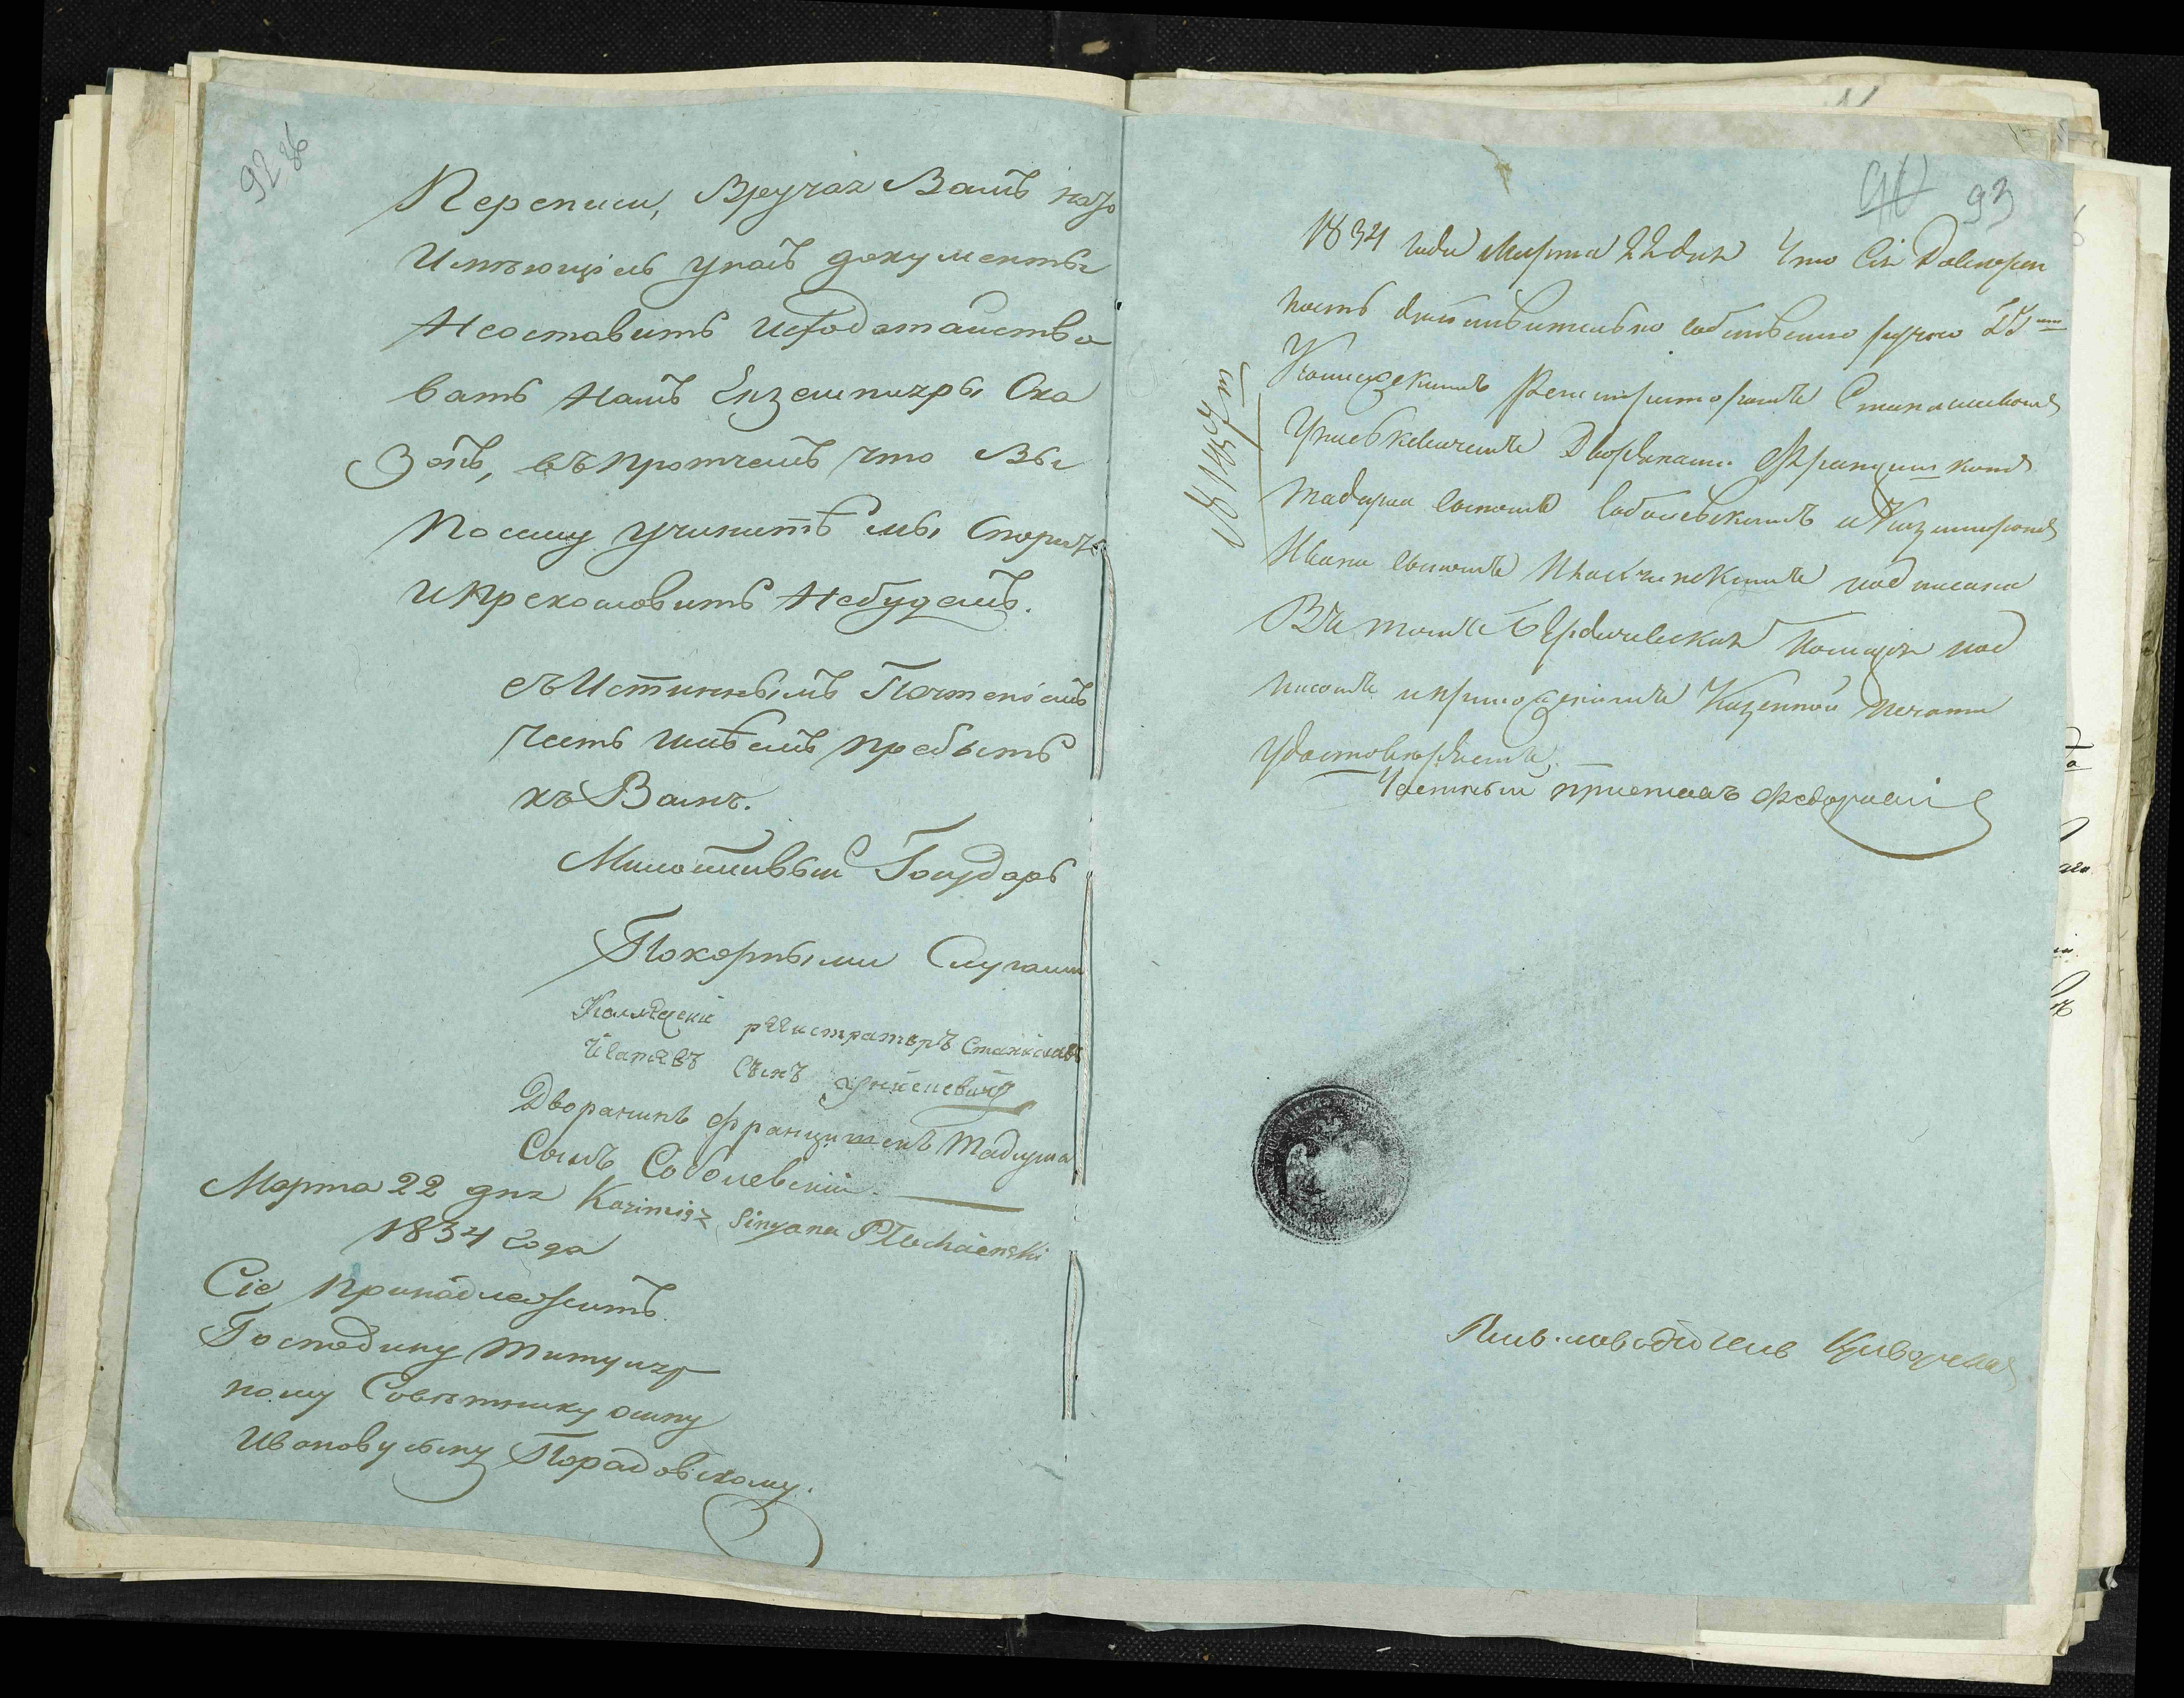 92 86
Переписи, Вручая Вамъ
Имѣющіесь унасъ документы
Неоставить исходатайство
вать Намъ Екземпляры Ска
Зокъ, въпротчемъ что Вы
Посему учинитѣ мы Спорить
ипрекословить Небудемъ.
съИстиннымъ Почтеніемъ
Честь имѣемъ пребыть
къ Вамъ.
Милостивый Государь
Покорными Слугами
регистраторъ Станиславъ
Сынъ
Дворанинъ францишекъ Тадиуша
Сынъ Соболевскій.
Марта 22 дня
Kazimirz Syn Jana
1834 года
Сіе принадлежитъ
Господину титуляр
ному Совѣтнику осипу
Иванову сыну Порадовскому.
93
1834 года Марта 22 дня Что Сія Доверен
ность действительно собственно ручно ГГ
Колежскимъ Регистраторомъ Станиславомъ
Дворянами Францишкомъ
Тадеуша сыномъ Соболевскимъ и Казимиромъ
Ивана сыномъ подписана
Въ томъ Бердичевская Полиція под
писомъ и приложеніемъ Казенной печати
удостоверяетъ.
Частный приставъ